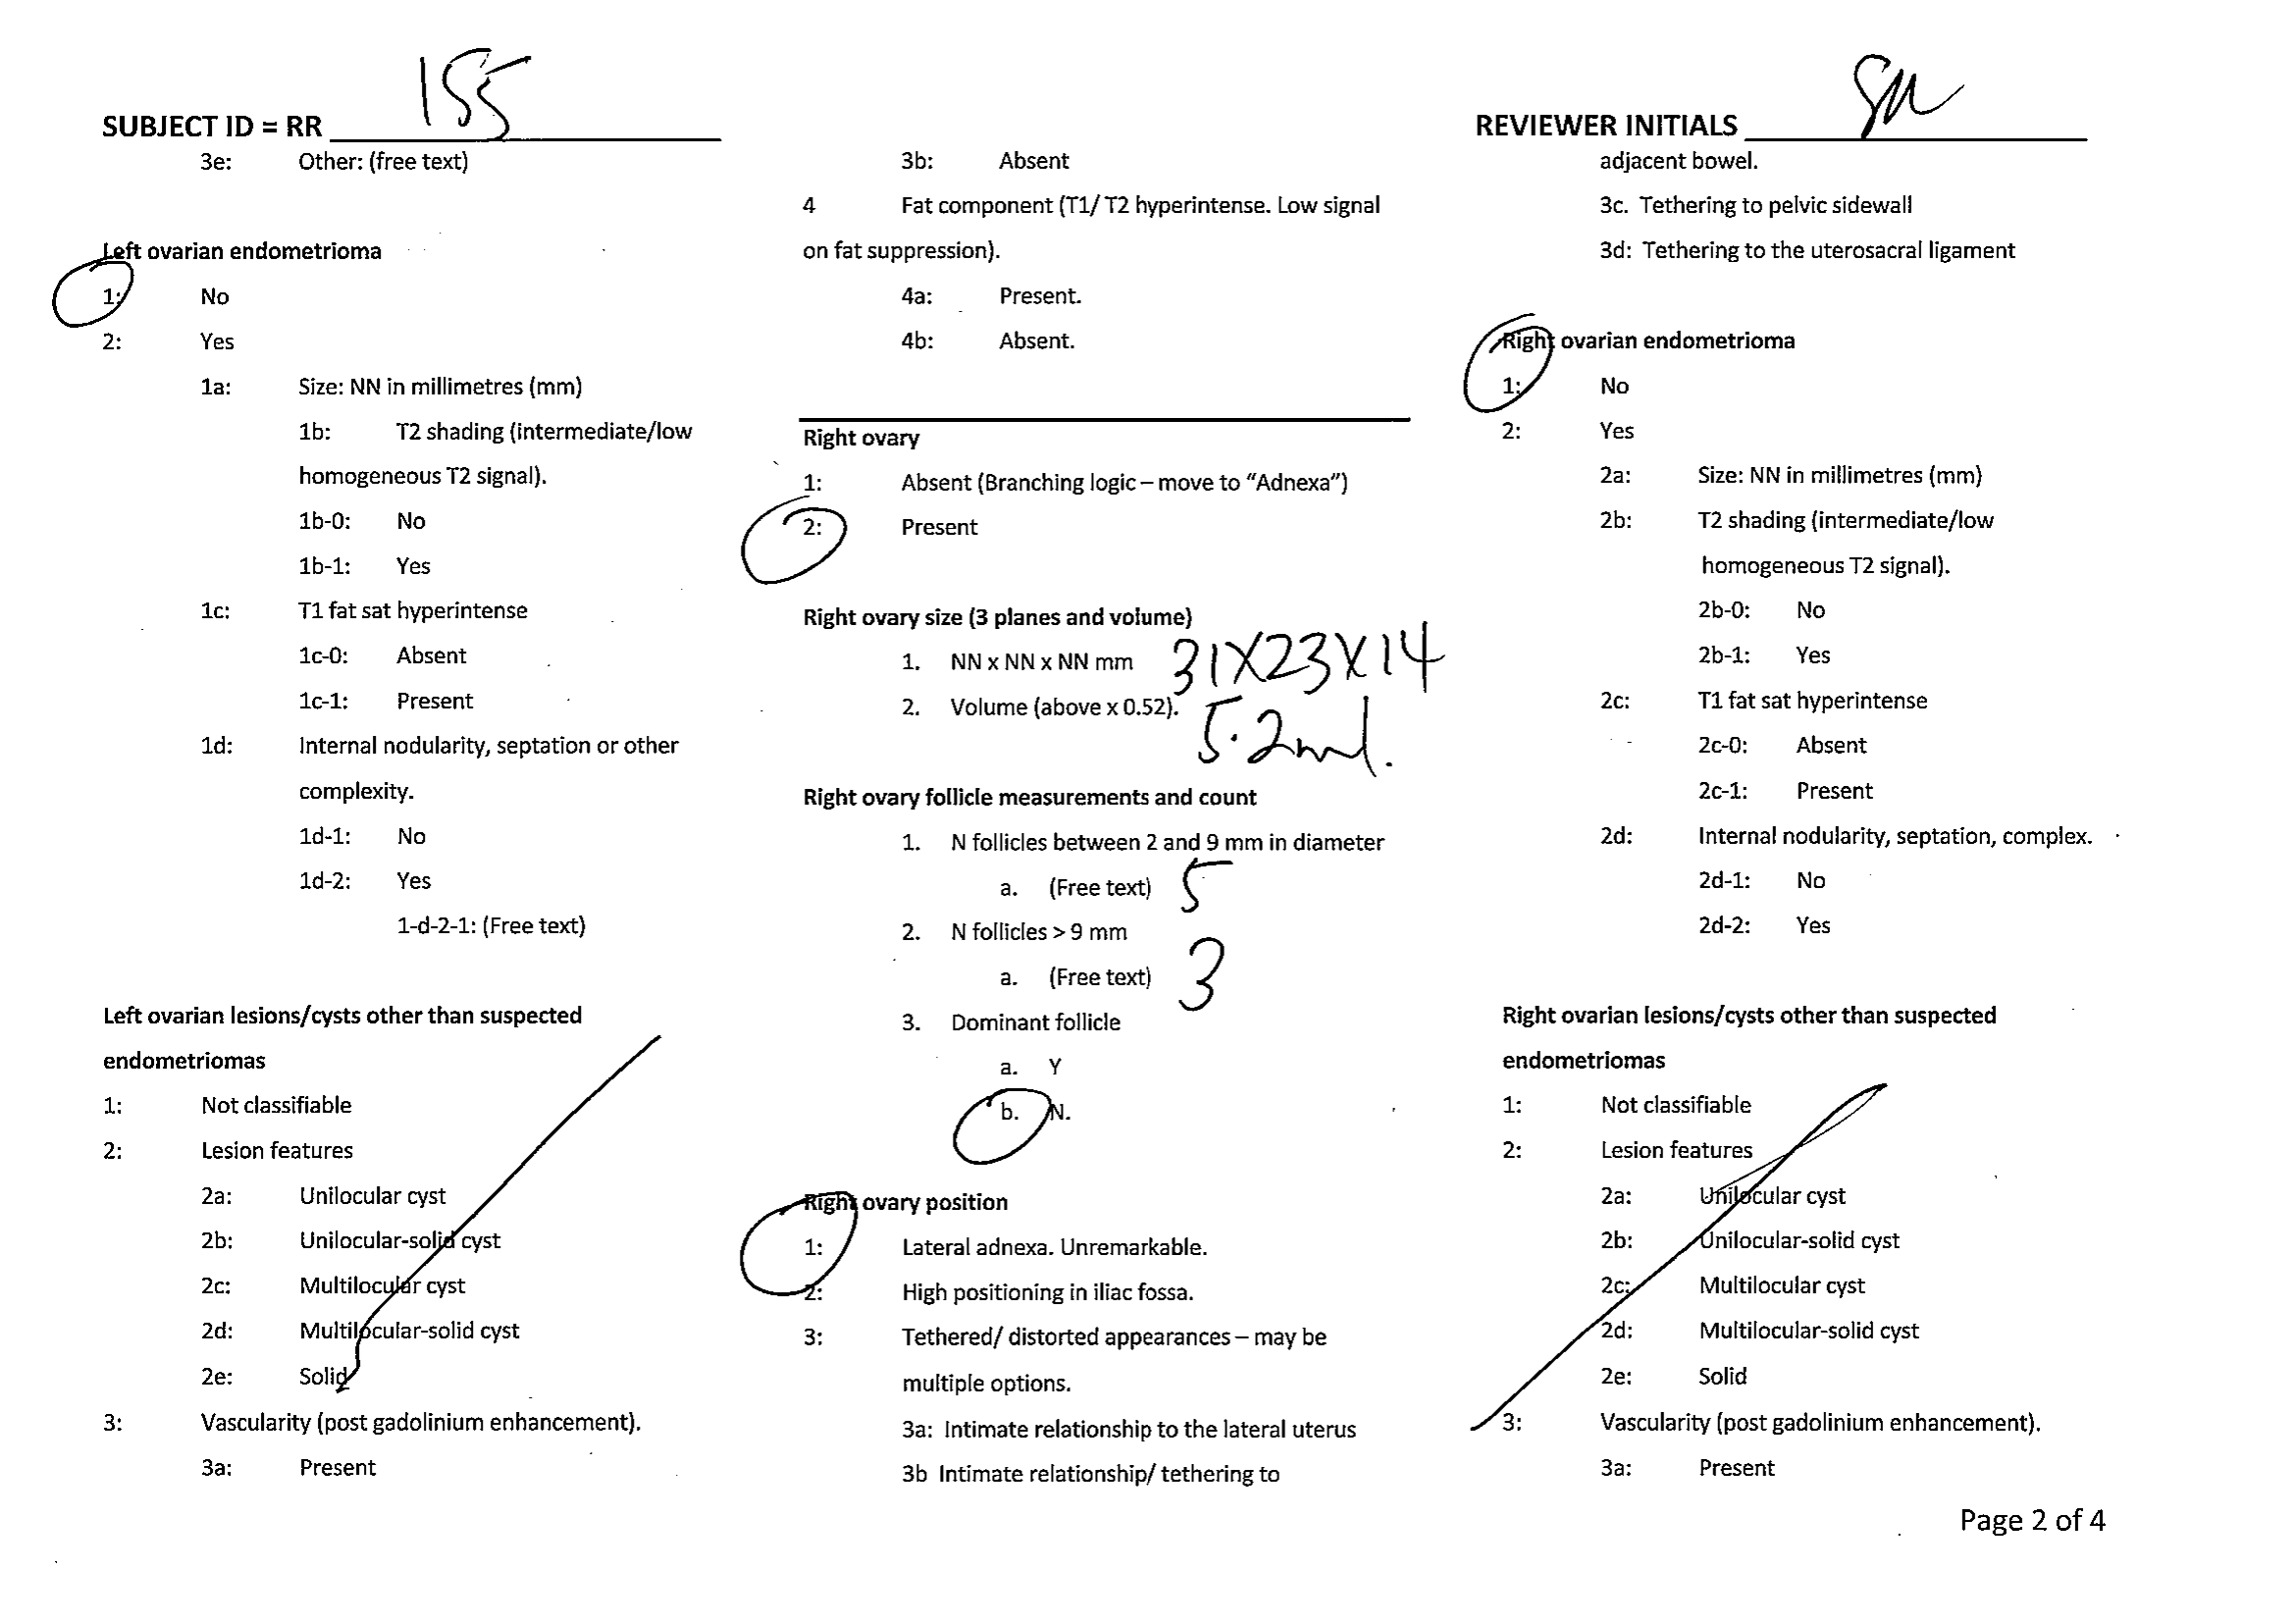 SUBJECT ID = RR 155
3e: Other: (free text)
Left ovarian endometrioma
1: No
2: Yes
1a: Size: NN in millimetres (mm)
1b: T2 shading (intermediate/low
homogeneous T2 signal).
1b-0: No
1b-1: Yes
1c: T1 fat sat hyperintense
1c-0: Absent
1c-1: Present
1d: Internal nodularity, septation or other
complexity.
1d-1: No
1d-2: Yes
1-d-2-1: (Free text)
Left ovarian lesions/cysts other than suspected
endometriomas
1: Not classifiable
2: Lesion features
2a: Unilocular cyst
2b: Unilocular-solid cyst
2c: Multilocular cyst
2d: Multilocular-solid cyst
2e: Solid
3: Vascularity (post gadolinium enhancement).
3a: Present
3b: Absent
4 Fat component (T1/ T2 hyperintense. Low signal
on fat suppression).
4a: Present.
4b: Absent.
Right ovary
1: Absent (Branching logic – move to “Adnexa”)
2: Present
Right ovary size (3 planes and volume)
1. NN x NN x NN mm 31X23X14
2. Volume (above x 0.52). 5.2ml.
Right ovary follicle measurements and count
1. N follicles between 2 and 9 mm in diameter
a. (Free text) 5
2. N follicles > 9 mm
a. (Free text) 3
3. Dominant follicle
a. Y
b. N.
Right ovary position
1: Lateral adnexa. Unremarkable.
2: High positioning in iliac fossa.
3: Tethered/ distorted appearances – may be
multiple options.
3a: Intimate relationship to the lateral uterus
3b Intimate relationship/ tethering to
REVIEWER INITIALS SM
adjacent bowel.
3c. Tethering to pelvic sidewall
3d: Tethering to the uterosacral ligament
Right ovarian endometrioma
1: No
2: Yes
2a: Size: NN in millimetres (mm)
2b: T2 shading (intermediate/low
homogeneous T2 signal).
2b-0: No
2b-1: Yes
2c: T1 fat sat hyperintense
2c-0: Absent
2c-1: Present
2d: Internal nodularity, septation, complex.
2d-1: No
2d-2: Yes
Right ovarian lesions/cysts other than suspected
endometriomas
1: Not classifiable
2: Lesion features
2a: Unilocular cyst
2b: Unilocular-solid cyst
2c: Multilocular cyst
2d: Multilocular-solid cyst
2e: Solid
3: Vascularity (post gadolinium enhancement).
3a: Present
Page 2 of 4